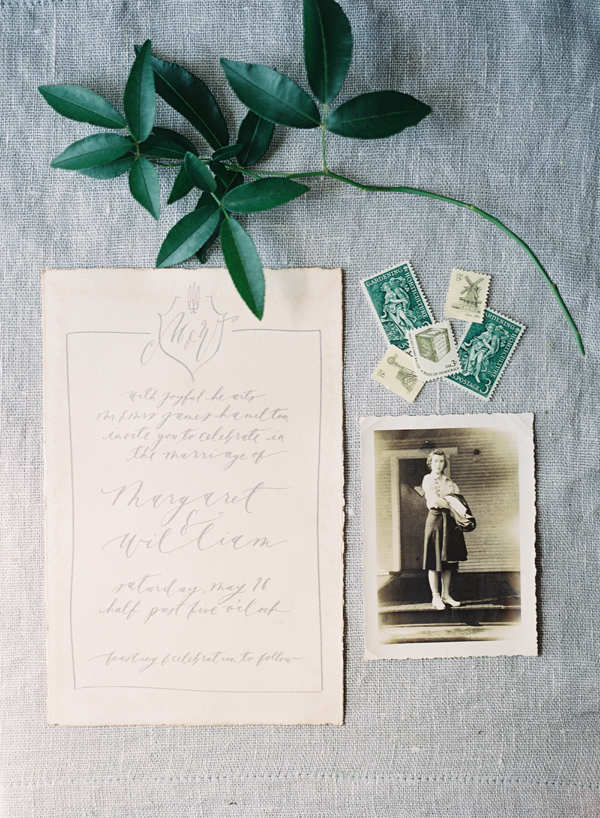 M & W
with joyful hearts
Mr & Mrs James Hamilton
invite you to celebrate in
the marriage of
Margaret
&
William
saturday, may 16
half past five o'clock
feasting & celebration to follow
GARDENING
HORTICULTURE
GARDENING
HORTICULTURE
POSTAGE 3¢